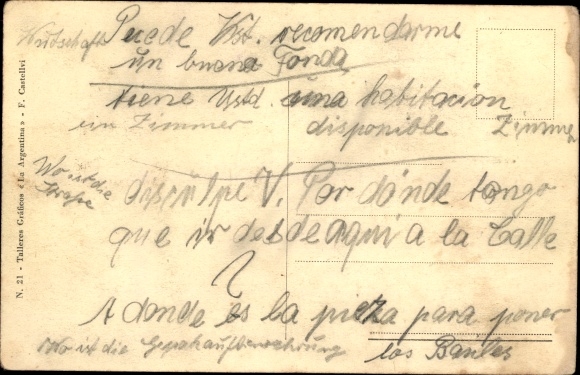 Wirtschaft Puede Vst. recomendarme
un buena Fonda
tiene Ustd. una habitacion
ein Zimmer disponible Zimmer
Wo ist die
Straße
disculpe V. Por dónde tengo
que ir desde aqui a la Calle
?
A donde es la pieza para poner
Wo ist die Gepäckaufbewahrung los Baules
N. 21 - Talleres Gráficos «La Argentina» - F. Castellvi